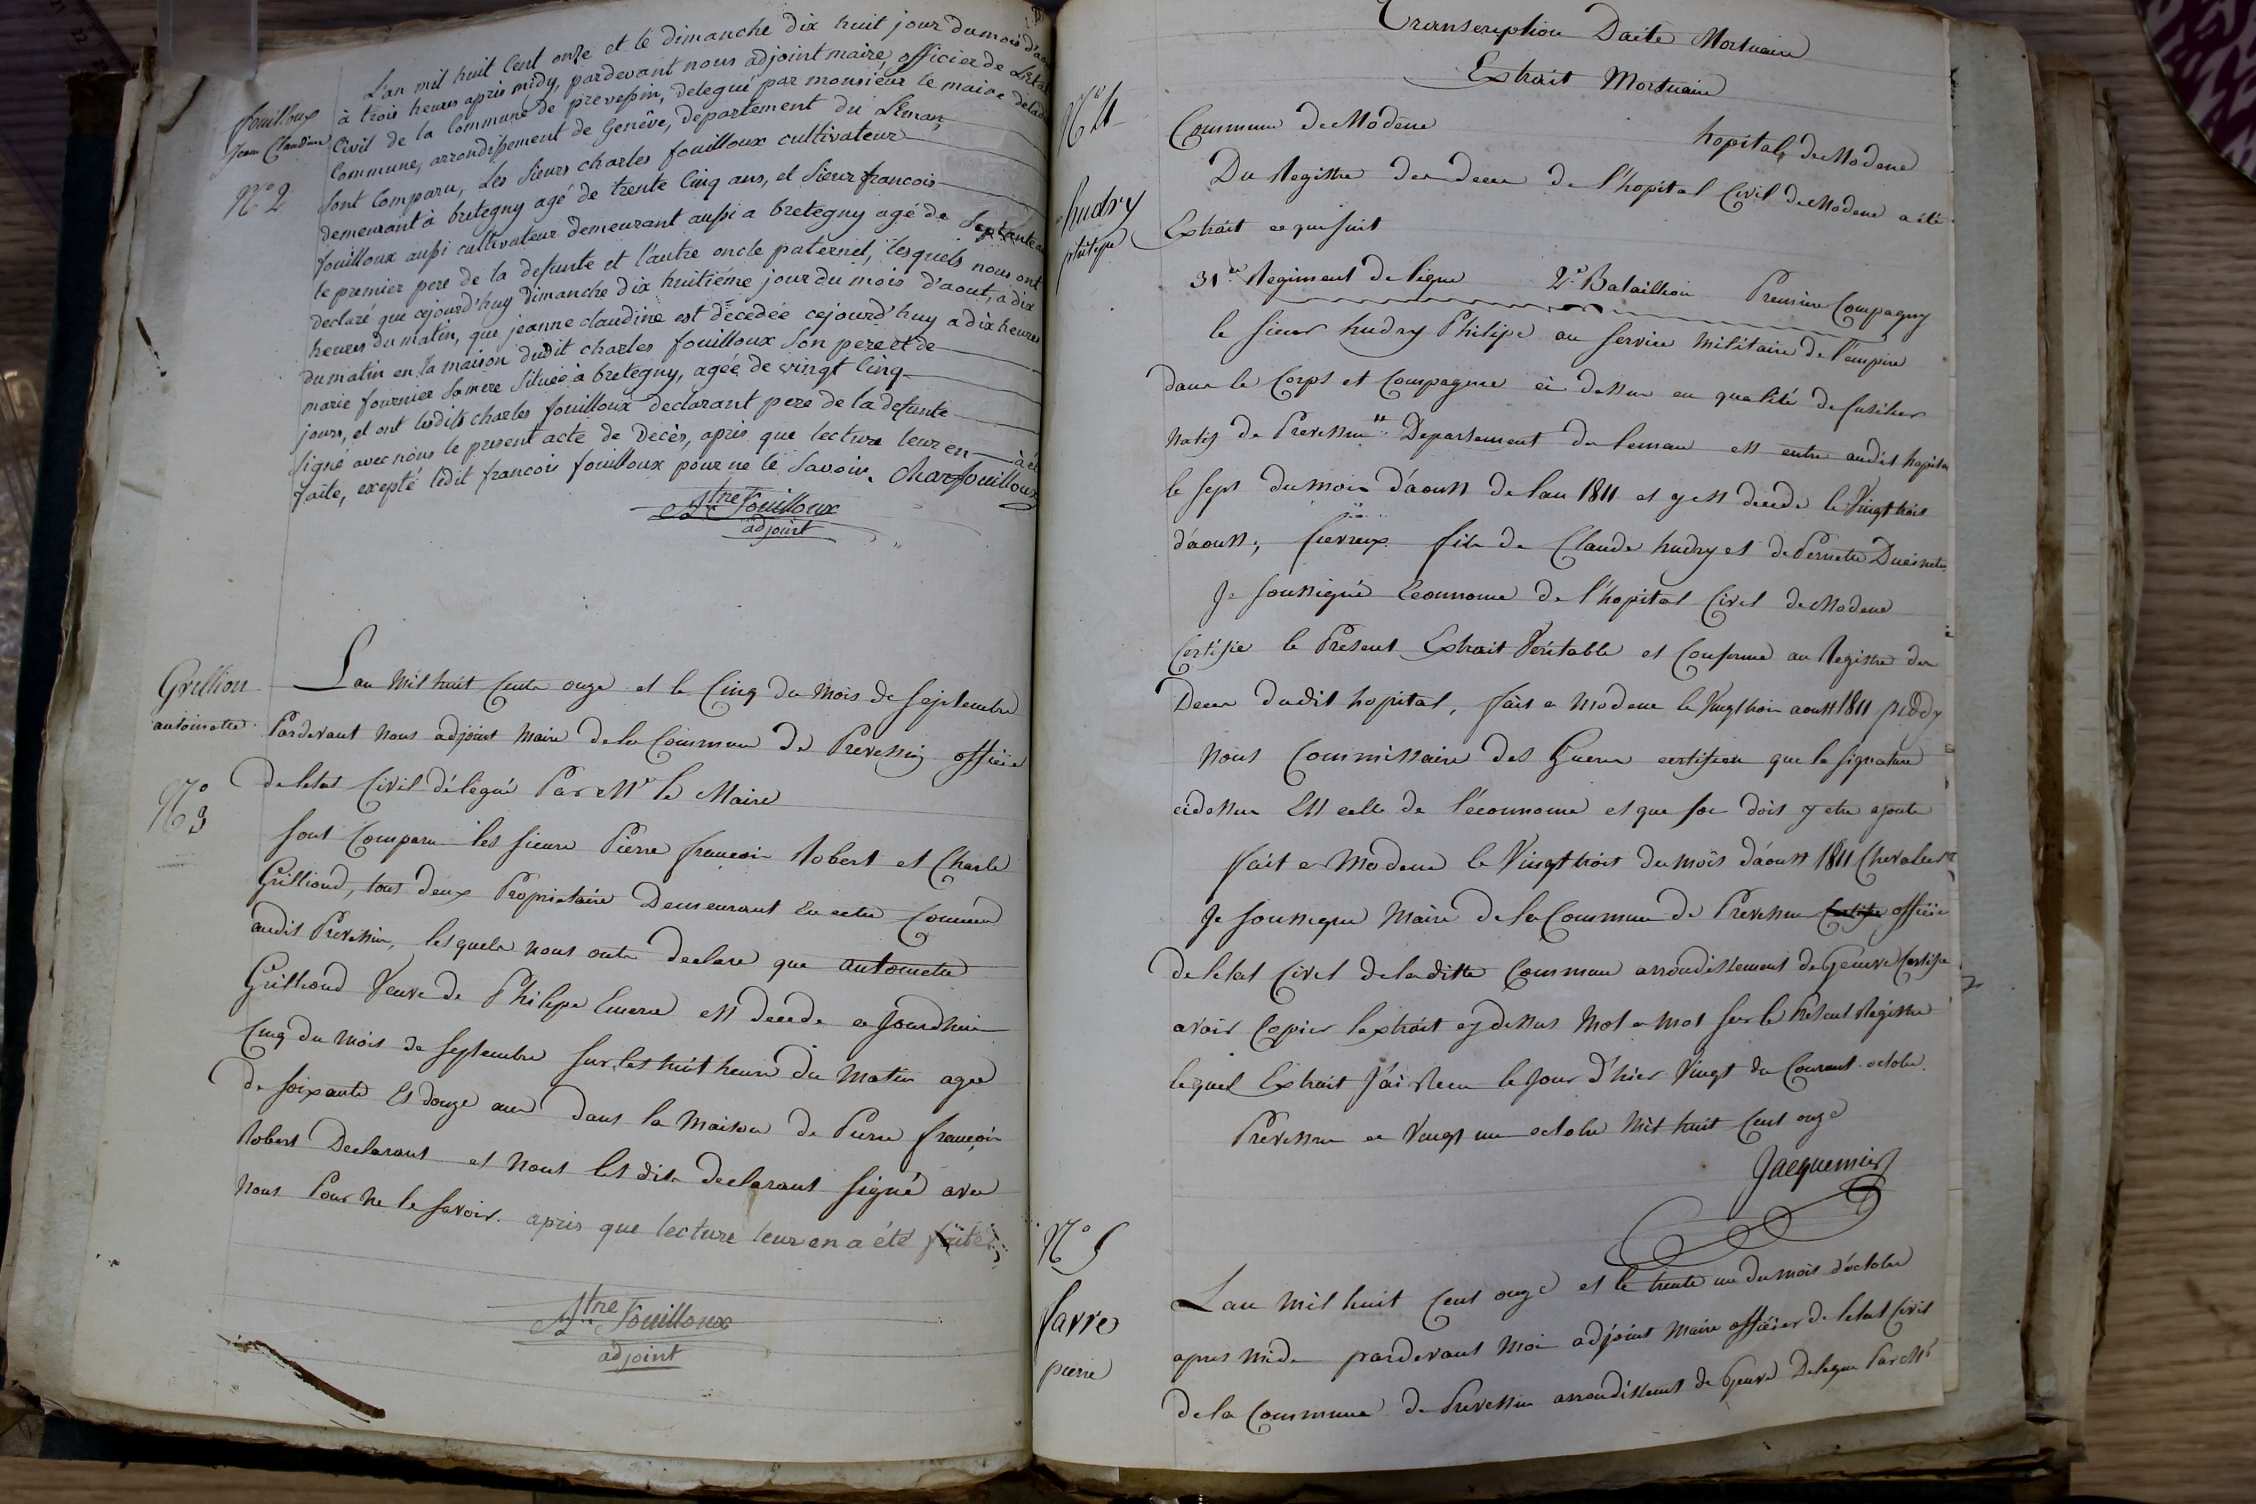 fouilloux
Jeanne Claudine
N.º 2
L'an mil huit Cent onze et le dimanche dix huit jour du mois d'aou
à trois heures apres midy, pardevant nous adjoint maire, officier de L'Etat
Civil de la Commune de prevessin, delegué par monsieur le maire de ladi
Commune, arrondissement de Genêve, departement du Léman,
sont Comparu, Les Sieurs charles fouilloux cultivateur
demeurant à bretegny agé de trente Cinq ans, et Sieur francois
fouilloux aussi cultivateur demeurant aussi a bretegny agé de Septante
le premier pere de la defunte et l'autre oncle paternel, lesquels nous ont
declaré que cejourd'huy dimanche dix huitiéme jour du mois d'aout, à dix
heures du matin, que jeanne claudine est décédée cejourd'huy a dix heures
du matin en la maison dudit charles fouilloux son pere et de
marie fournier sa mere située à bretegny, agée de vingt cinq
jours, et ont lesdits charles fouilloux declarant pere de la defunte
signé avec nous le present acte de Decès, apres que lecture leur en à é
faite, exepté ledit francois fouilloux pour ne le Savoir. Char fouilloux
Fouilloux
adjoint
Grillion
antoinette
N.º 3
L'an Mil huit Cents onze et le Cinq du Mois de Septembre
Pardevant Nous adjoint Maire de la Commune de Prevessin officie
de letat Civil délégué Par Mr le Maire
sont Comparu les sieurs Pierre francoin Robert et Charle
Grilliond, tous deux Proprietaire Demeurant en cette Commun
audit Prevessin, lesquels nous onts declare que antoinette
Grilliond Veuve de Philipe Emery est decede ce Jourdhui
Cinq du Mois de Septembre sur les huit heure du Matin agee
de soixante Et douze ans dans la Maison de Pierre francoin
Robert Declarant et Nont les dits declarant signé avec
Nous Pour Ne le savoir. apris que lecture leur en a été faite
Fouilloux
adjoint
Transcription Dacte Mortuaire
Extrait Mortuaire
N.º 4
hudry
philipe
Commune de Modene hopital de Modene
Du Registre des deces de l'hopital Civil de Modene a été
Extrait ce qui suit
31.e Regiment de ligne 2.e Bataillion Premiere Compagny
le sieur hudry Philipe au service Militaire de l'empire
dans le Corps et Compagnie ci dessus en qualité de fusilier
Natif de Prevessin Departement du leman est entre audit hopital
le sept du mois d'aoust de l'an 1811 et y est décédé le Vingt trois
d'aoust, fievreux fils de Claude hudry et de Pernette
Je soussigné Econnome de l'hopital Civil de Modene
Certifie le Present Extrait Véritable et Conforme au Registre des
Deces dudit hopital, fait a Modene le Vingt trois aoust 1811
Nous Commissaire des Guerre certifion que la signature
cidessus Est celle de l'econnome et que foi dois y etre ajoute
fait a Modene le Vingt trois du mois d'aoust 1811 Chevalier
Je soussigne Maire de la Commune de Prevessin Certifie officie
de letat Civil de laditte Commune arrondissement de Geneve Certifie
avoir Copier lextrait cy dessus Mot a Mot sur le Présent Registre
lequel Extrait J'ai Recu le Jour d'hier Vingt du Courant octobre.
Prevessin ce Vingt un octobre Mil huit Cent onze
Jacquemier
N.º 5
favre
pierre
L'an Mil huit Cent onze et le trente un du mois d'octobre
apres midi pardevant Moi adjoint Maire officier de letat Civil
de la Commune de Prevessin arrondissement de Geneve Delegue Par Mr